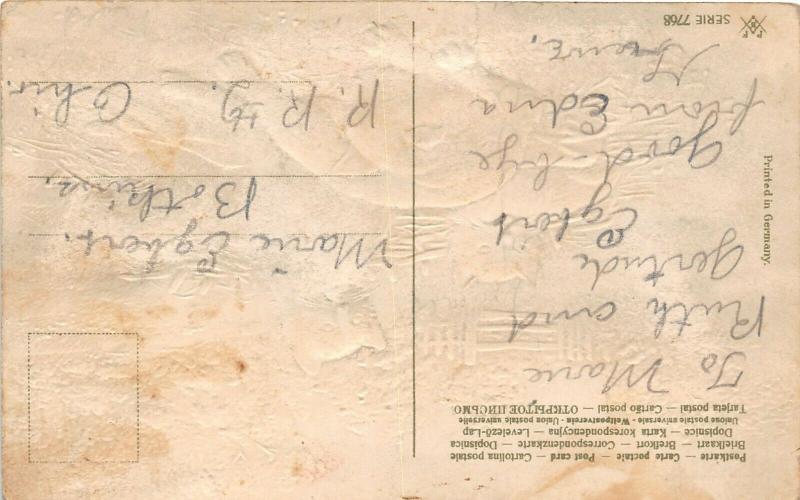 Postkarte — Carte postale — Post card — Cartolina postale
Briefkaart — Brefkort — Correspondenzkarte — Dopisnica
Dopisnice — Karta korespondencyjna — Levelező-Lap
Unione postale universale - Weltpostverein - Union postale universelle
Tarjeta postal — Cartão postal — ОТКРЫТОЕ ПИСЬМО
To Marie
Ruth and
Gertrude
Egbert
Good-bye
from Edna
SERIE 7768
Printed in Germany.
Marie Egbert.
Botkins,
R. R. Ohio.